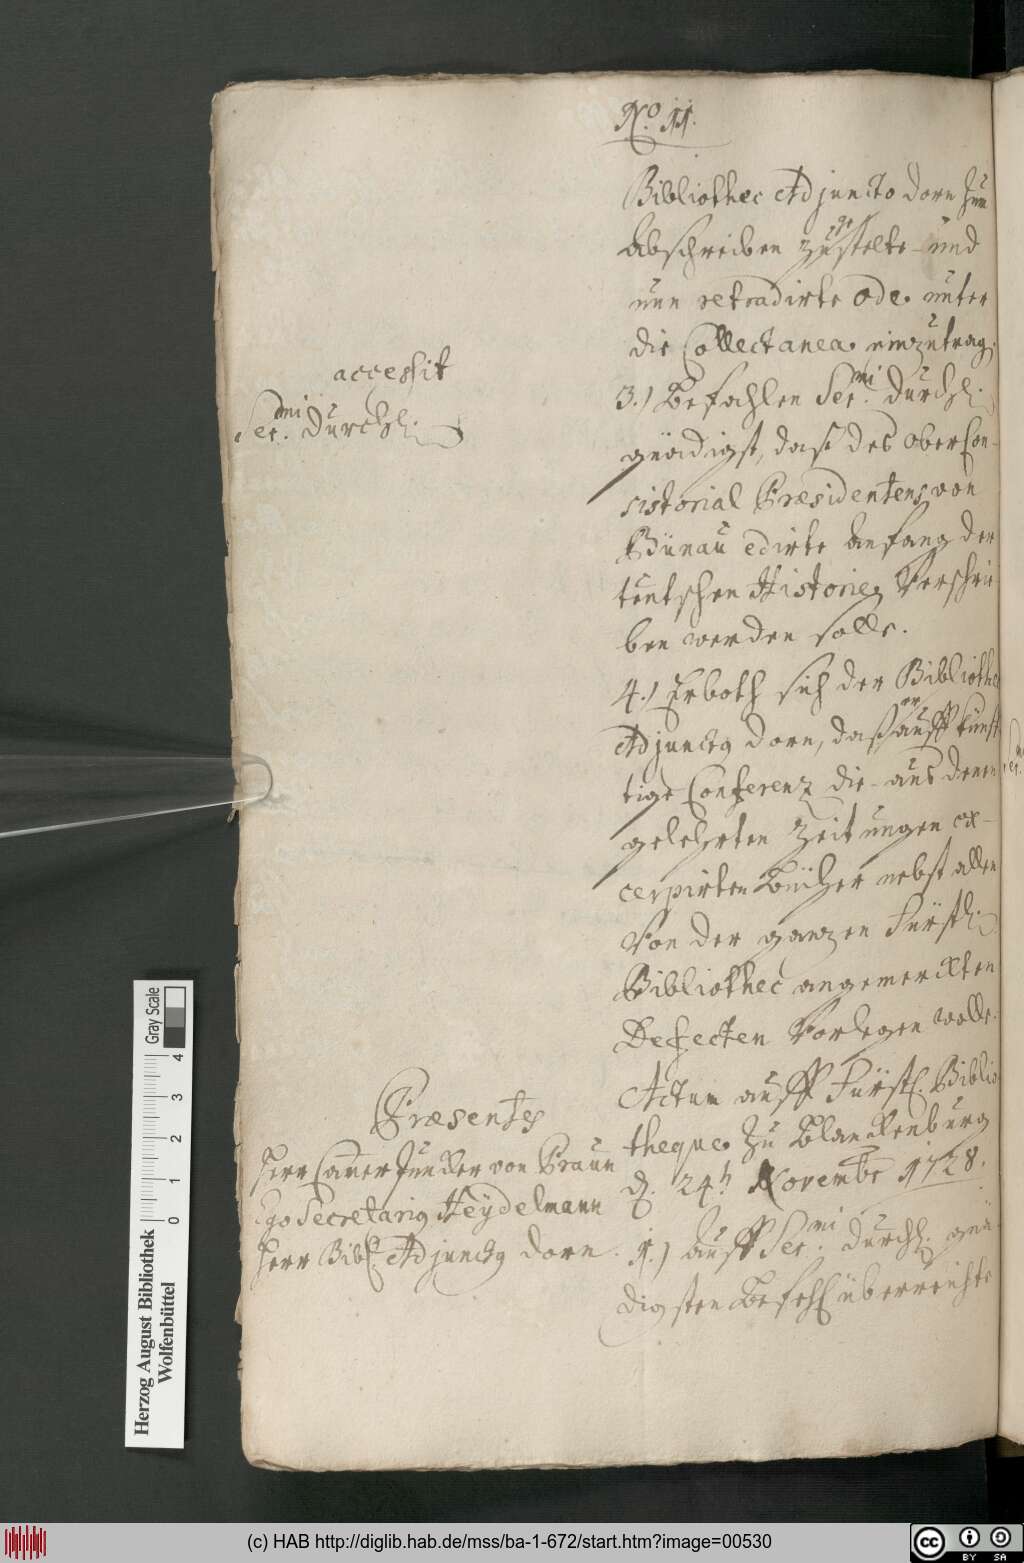 No. 11.
Bibliothec Adjuncto Dorn zum
abschreiben zugestelte und
nun retradirte Ode. unter
die Collectanea. einzutrag.
accessit
Ser.mi Durchl.
3.) Befahlen Ser.mi Durchl.
gnädigst, daß des Ober Con-
sistorial Præsidentens von
Bünau edirte Anfang der
teutschen Historie, Verschrie
ben werden solle.
4.) Erboth sich der Bibliothec
Adjunctus Dorn, daß er auff künff
tige Conferenz die aus denen
gelehrten Zeitungen ex-
cerpirten Bücher nebst allen
Von der ganzen Fürstl.
Bibliothec angemerckten
Defecten Vorlegen wolle.
Actum auff Fürstl. Biblio
theque. zu Blanckenburg
d. 24t. Novembr 1728.
Præsentes
Herr Camer Juncker von Praun
Ego Secretarius Heydelmann
Herr Bibl. Adjunctus Dorn.
1.) Auff Ser.mi Durchl. gnä
digsten Befehl überreichte
Herzog August Bibliothek
Wolfenbüttel
0 1 2 3 4
Gray Scale
(c) HAB http://diglib.hab.de/mss/ba-1-672/start.htm?image=00530
cc BY SA